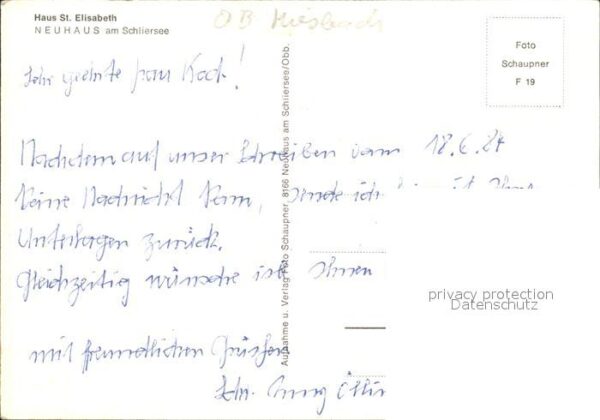 Haus St. Elisabeth
NEUHAUS am Schliersee
OB Miesbach
Foto
Schaupner
F 19
Sehr geehrte Frau Koch!
Nachdem auf unser Schreiben vom 18.6.84
keine Nachricht kam, sende ich
Unterlagen zurück.
Gleichzeitig wünsche ich Ihnen
mit freundlichen Grüßen
Aufnahme u. Verlag Foto Schaupner, 8166 Neuhaus am Schliersee/Obb.
privacy protection
Datenschutz